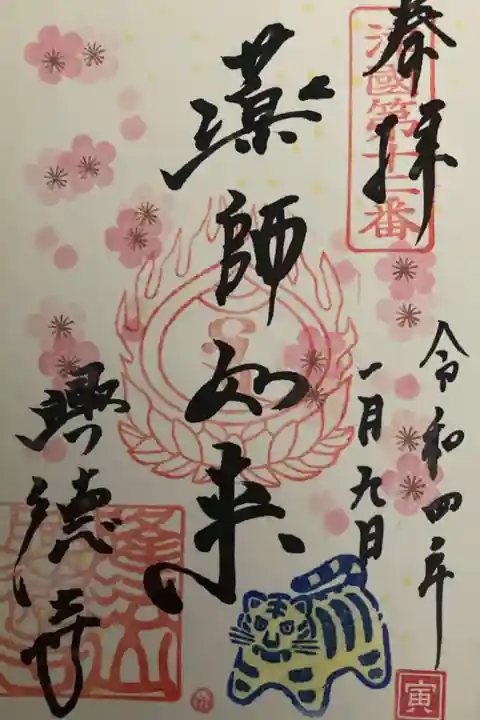 奉拝
法國第十二番
令和四年
一月九日
薬師如来
興徳寺
寅